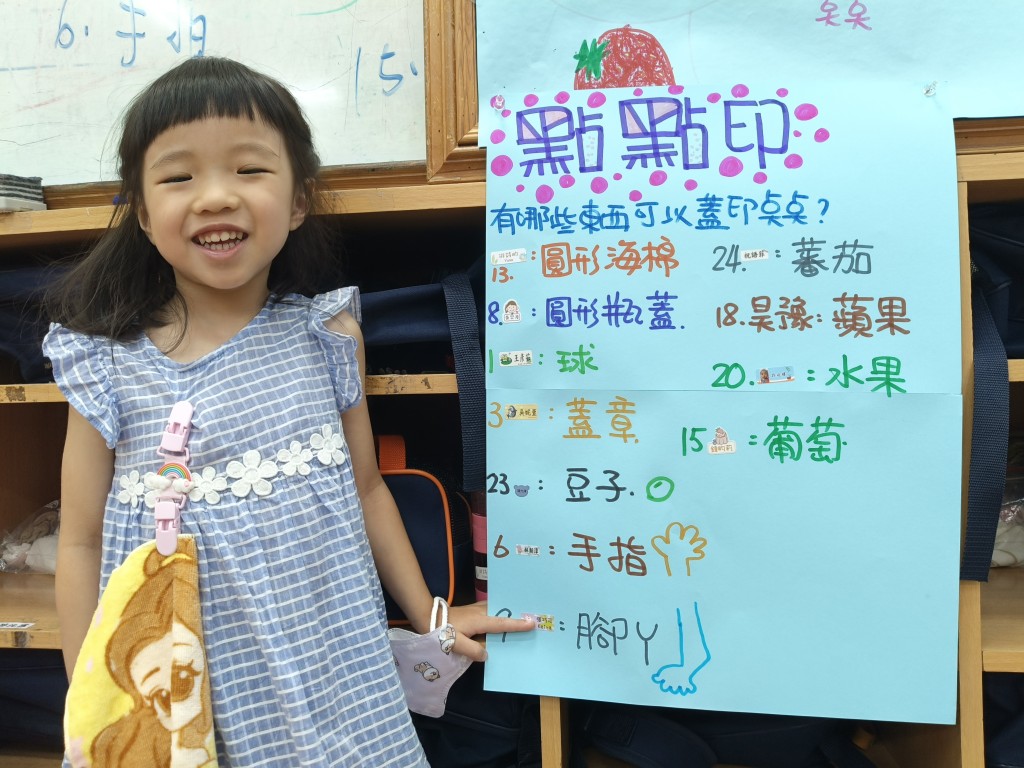 6. 手指
15.
点点
點點印
有哪些東西可以蓋印点点？
13. ：圓形海棉
8. ：圓形瓶蓋.
1 ：球
3 ：蓋章
23 ：豆子.
6 ：手指
9 ：腳丫
24. ：蕃茄
18.吳豫：蘋果
20. ：水果
15 ：葡萄